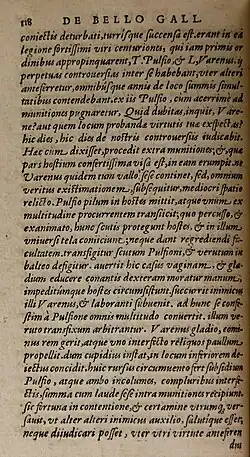 118 DE BELLO GALL.
coniectis deturbati, turrisque succensa est. erant in ea
legione fortissimi viri centuriones, qui iam primis or
dinibus appropinquarent, T. Pulfio, & L. Varenus. ij
perpetuas controuersias inter se habebant, vter alteri
anteferretur, omnibusque annis de loco summis simul
tatibus contendebant. ex iis Pulfio, cum acerrimè ad
munitiones pugnaretur, Quid dubitas, inquit, Vare-
ne? aut quem locum probandæ virtutis tuæ expectas?
hic dies, hic dies de nostris controuersiis iudicabit.
Hæc cùm dixisset, procedit extra munitiones, & quæ
pars hostium confertissima visa est, in eam erumpit. ne
Varenus quidem tum vallo sese continet, sed, omnium
veritus existimationem, subsequitur. mediocri spatio
relicto. Pulfio pilum in hostis mittit, atque vnum ex
multitudine procurrentem transiicit. quo percusso, &
exanimato, hunc scutis protegunt hostes, & in illum
vniuersi tela coniiciunt, neque dant regrediendi fa
cultatem. transfigitur scutum Pulfioni, & verutum in
balteo defigitur. auertit hic casus vaginam, & gla-
dium educere conanti dexteram moratur manum.
impeditumque hostes circumsistunt. succurrit inimicus
illi Varenus, & laboranti subuenit. ad hunc se confe-
stim à Pulfione omnis multitudo conuertit. illum ve-
ruto transfixum arbitrantur. Varenus gladio, comi
nus rem gerit, atque vno interfecto reliquos paullum
propellit. dum cupidius instat, in locum inferiorem de
iectus concidit. huic rursus circumuento fert subsidium
Pulfio, atque ambo incolumes, compluribus interfe-
ctis, summa cum laude sese intra munitiones recipiunt
sic fortuna in contentione, & certamine vtrumque ver-
sauit, vt alter alteri inimicus auxilio, salutique esset,
neque diiudicari posset, vter vtri virtute anteferen
dus